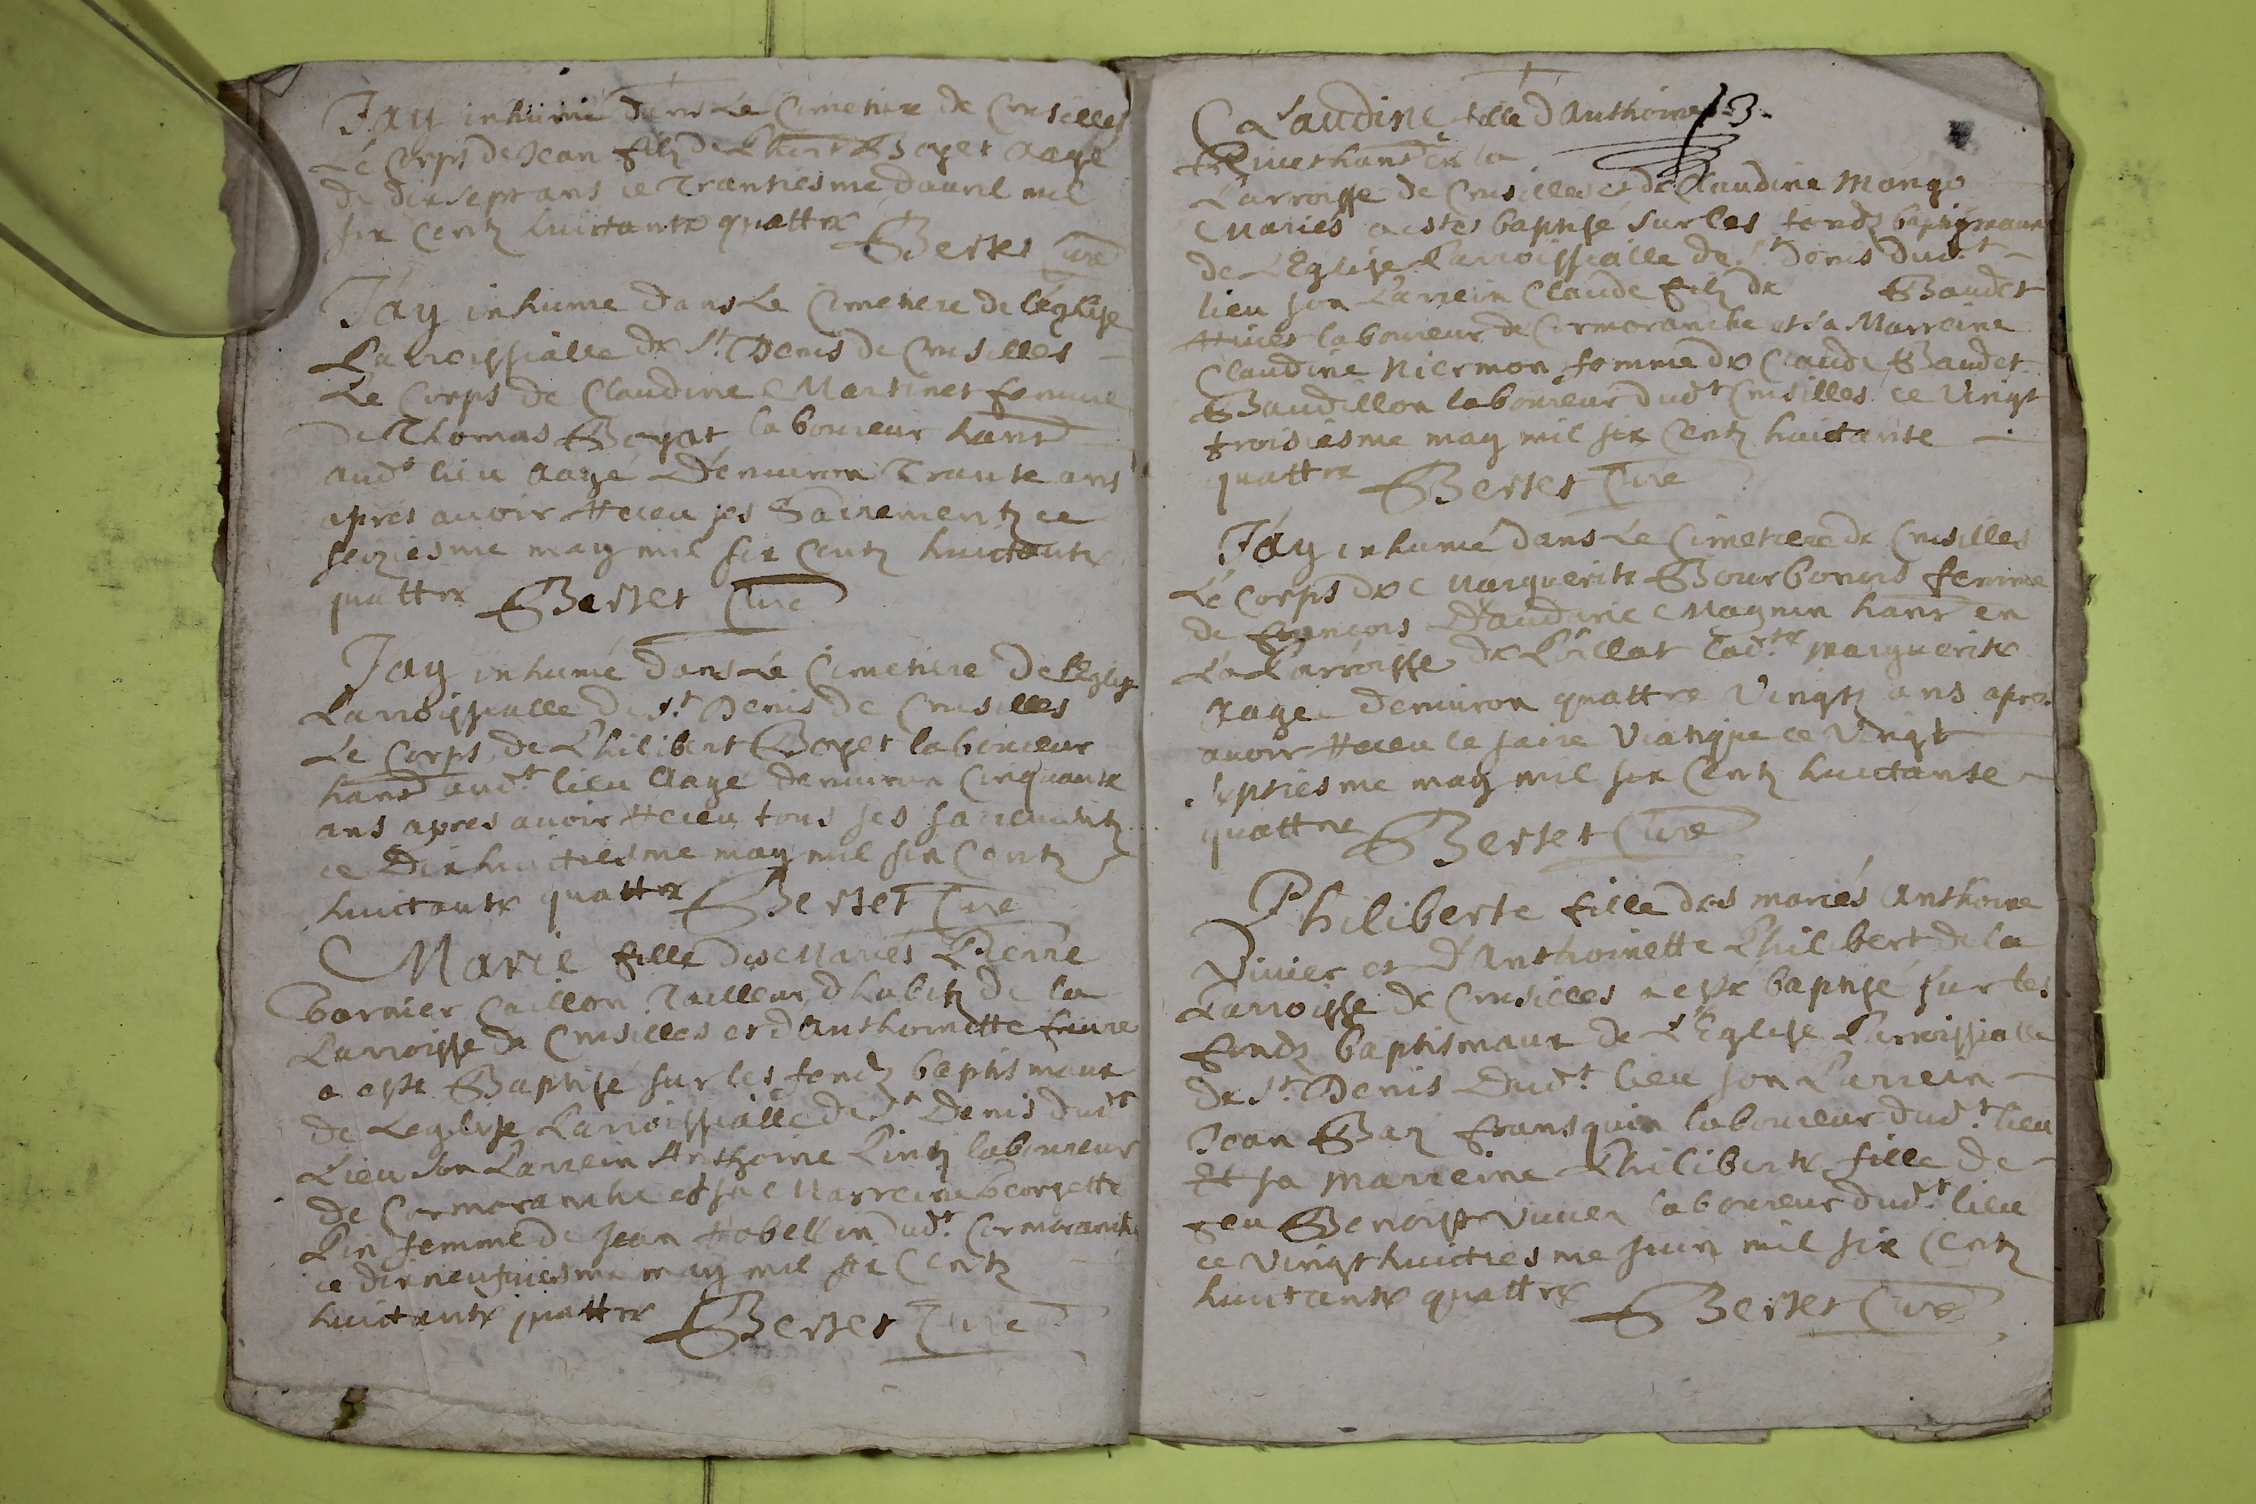 Jay inhumé dans Le Cimetiere de Crusilles
Le corps de Jean filz de Phibert Boyet aagé
de dix sept ans ce Trantiesme d'avril mil
six Centz huictante quattre Berset Curé
Jay inhumé dans Le Cimetiere de l'eglise
Parroissialle de St Denis de Crusilles
Le Corps de Claudine Martinet femme
de Thomas Boyat laboureur hant
audt lieu aagé D'environ Trante ans
apres avoir Receu ses Sacrementz ce
seiziesme may mil six Centz huictante
quattre Berset Curé
Jay inhumé dans Le Cimetiere de leglise
Parroissialle de St Denis de Crusilles
Le Corps de Philibert Boyet laboureur
hant audt lieu aagé denviron Cinquante
ans apres avoir Receu tous ses sacrementz
ce Dixhuictiesme may mil six Centz
huictante quattre Berset Curé
Marie fille des Mariés Pierre
bornier Caillon Tailleur d'habitz de la
Parroisse de Crusilles et d'Anthoinette
a esté Baptisé sur les fondz baptismaux
de Leglise Parroissialle de St Denis dudt
Lieu son Parrein Anthoine laboureur
de Cormoranche et sa Marreine Georgette
Pin femme de Jean Robellin dudt Cormoranche
ce dixneufviesme may mil six Centz
huictante quattre Berset Curé
3.
Claudine fille d'Anthoine
Rivet hant en la
Parroisse de Crusilles et de Claudine
Mariés a estés baptisé sur les fondz baptismaux
de L'Eglise Parroissialle de St Denis dudt
lieu son Parrein Claude filz de Baudet
laboureur de Cormoranche et sa Marreine
Claudine Niermon femme de Claude Baudet
Baudillon laboureur dudt Crusilles ce Vingt
troisiesme may mil six Centz huictante
quattre Berset Curé
Jay inhumé dans Le Cimetiere de Crusilles
Le Corps de Marguerite Bourbonois femme
de François Magnin hant en
La Parroisse de Pillat ladte Marguerite
aagée denviron quattre Vingtz ans apres
avoir Receu le sacre Viatique ce Vingt
septiesme may mil six Centz huictante
quattre Berset Curé
Philiberte fille des mariés Anthoine
Vivier et d'Anthoinette Philibert de la
Parroisse de Crusilles a esté baptisé sur les
fondz baptismaux de L'Eglise Parroissialle
de St Denis Dudt lieu son Parrein
Jean fransquin laboureur dudt lieu
Et sa Marreine Philiberte fille de
feu Benoist Vivier laboureur dudt lieu
ce vingt huictiesme Juin mil six Centz
huictante quattre Berset Curé